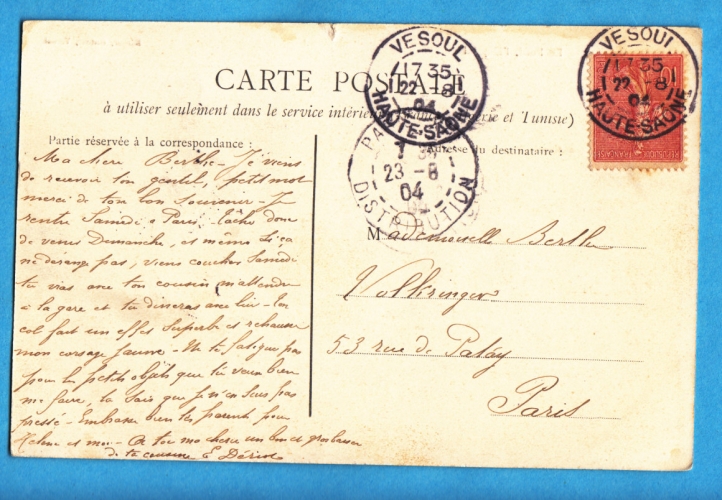 CARTE POSTALE
à utiliser seulement dans le service intérieur et Tunisie)
Partie réservée à la correspondance :
Adresse du destinataire :
VESOUL
17 35
22 - 8
04
HAUTE-SAÔNE
VESOUL
17 35
22 8
04
HAUTE-SAÔNE
10
PA
1
23 - 8
04
DISTRIBUTION
Ma chère Berthe - Je viens
de recevoir ton gentil petit mot
merci de ton bon souvenir - Je
rentre Samedi à Paris - tâche donc
de venir Dimanche, et même si ça
ne dérange pas, viens coucher Samedi
tu vas avec ton cousin m'attendre
à la gare et tu dineras avec lui - Ton
col fait un effet superbe et rehausse
mon corsage jaune - Ne te fatigue pas
pour les petits objets que tu veux bien
me faire, tu sais que je n'en suis pas
pressé - Embrasse bien tes parents pour
et moi - à toi ma chère un bon et gros baiser
de ta cousine E
Mademoiselle Berthe
Volkringer
53 rue de Patay
Paris